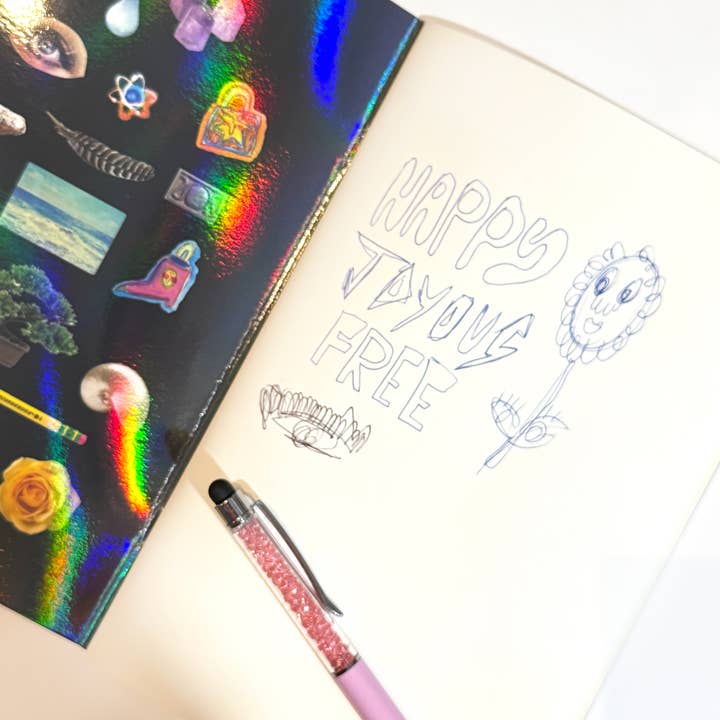 HAPPY
JOYOUS
FREE